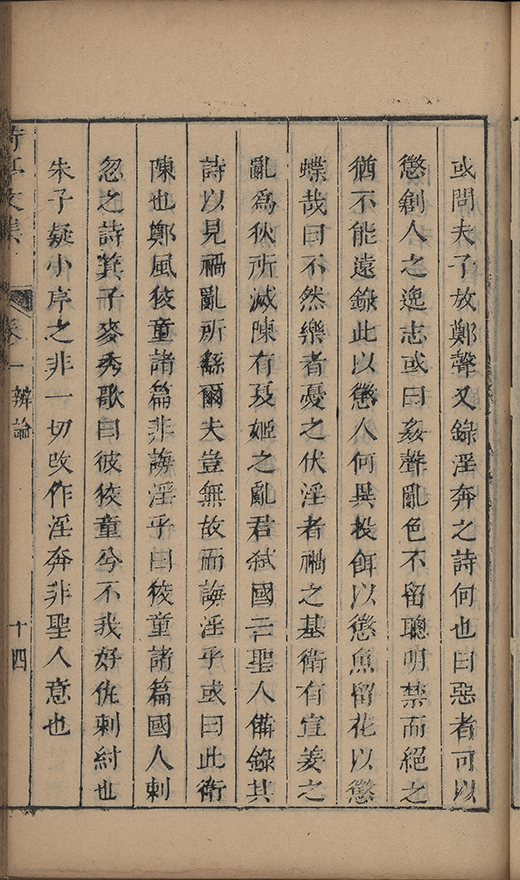 或問夫子放鄭聲又錄淫奔之詩何也曰惡者可以
懲創人之逸志或曰姦聲亂色不留聰明禁而絕之
猶不能遠錄此以懲人何異投餌以懲魚留花以懲
蝶哉曰不然樂者憂之伏淫者禍之基衛有宣姜之
亂為狄所滅陳有夏姬之亂君弑國亡聖人備錄其
詩以見禍亂所繇爾夫豈無故而誨淫乎或曰此衛
陳也鄭風狡童諸篇非誨淫乎曰狡童諸篇國人刺
忽之詩箕子麥秀歌曰彼狡童兮不我好仇刺紂也
朱子疑小序之非一切改作淫奔非聖人意也
亭文集
卷一 辨論
十四